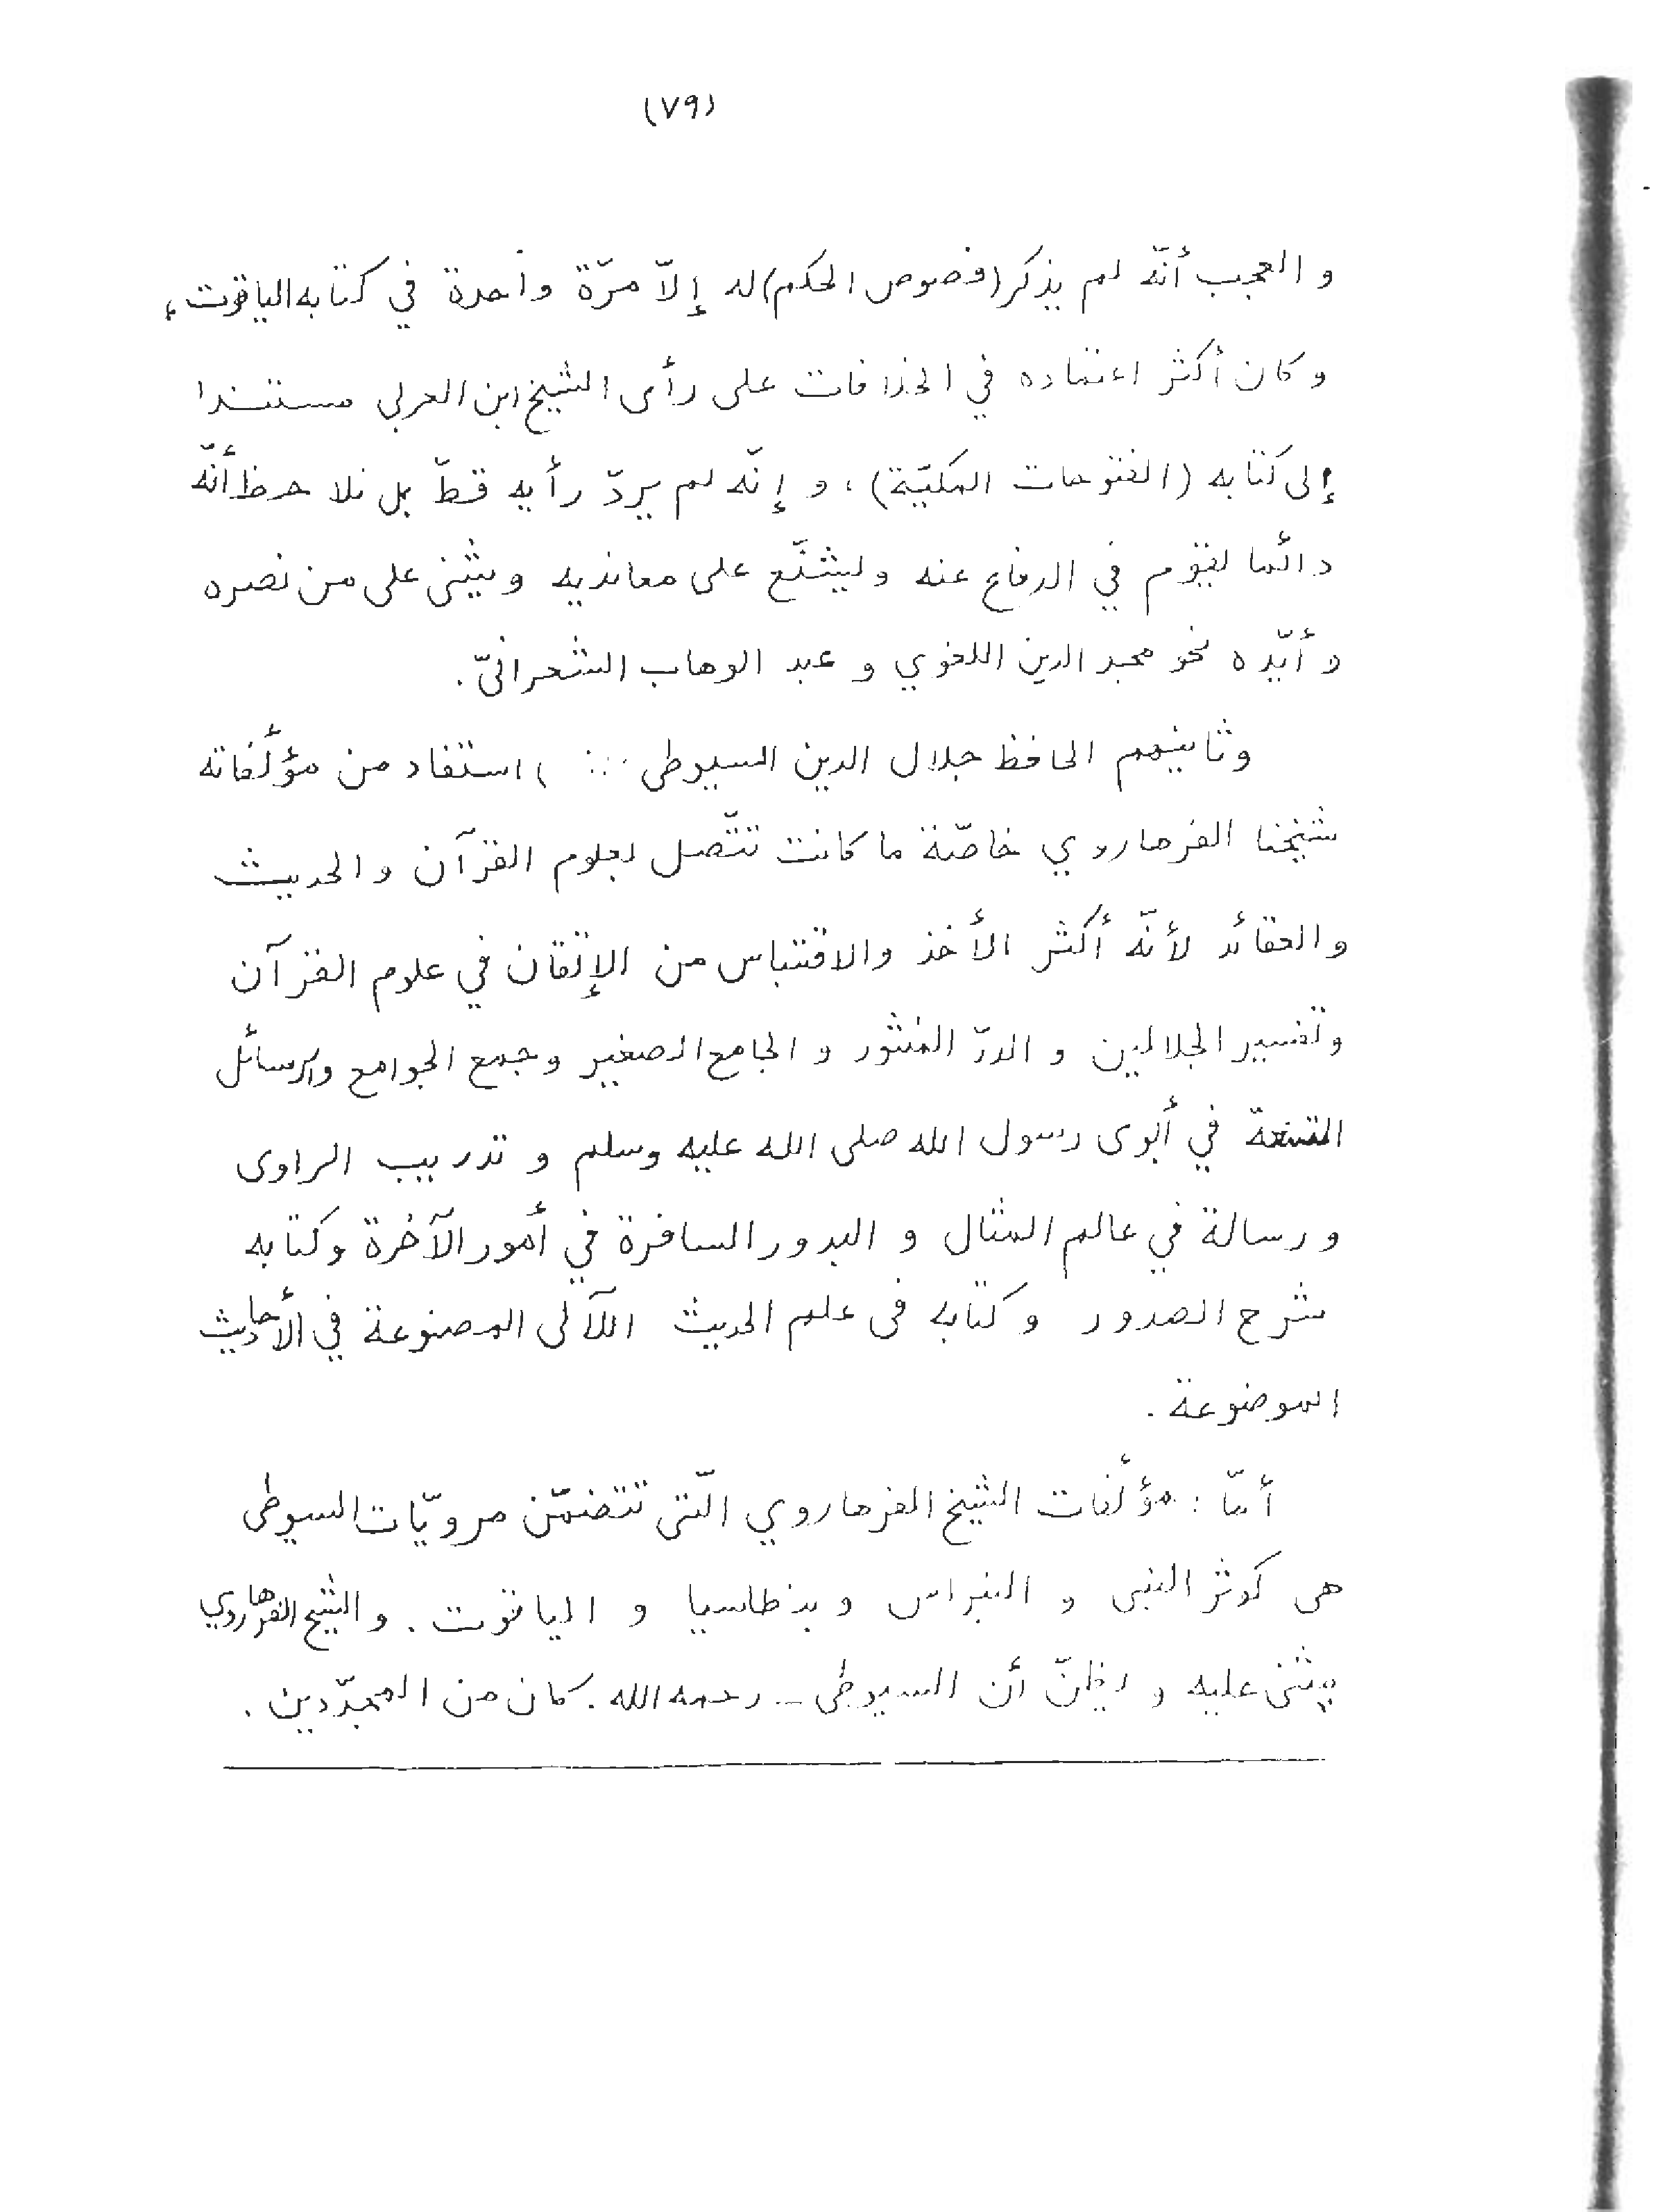 (٧٩)
و العجب أنّه لم يذكر (فصوص الحكم) له إلاّ مرّة واحدة في كتابه الياقوت،
و كان أكثر اعتماده في الخلافات على رأى الشيخ ابن العربى مستندا
إلى كتابه (الفتوحات المكيّة)، و إنّه لم يردّ رأيه قطّ بل نلاحظ أنّه
دائما يقوم في الدفاع عنه ويشنّع على معانديه ويثنى على من نصره
و أيّده نحو مجد الدين اللغوي و عبد الوهاب الشعرانىّ.
وثانيهم الحافظ جلال الدين السيوطى ، استفاد من مؤلّفاته
شيخنا الفرهاروي خاصّة ما كانت تتّصل بعلوم القرآن و الحديث
و العقائد لأنّه أكثر الأخذ والاقتباس من الإتقان في علوم القرآن
وتفسير الجلالين و الدرّ المنثور و الجامع الصغير وجمع الجوامع والرسائل
التسعة في أبوى رسول الله صلى الله عليه وسلم و تدريب الراوى
و رسالة في عالم المثال و البدور السافرة في أمور الآخرة وكتابه
شرح الصدور و كتابه فى علم الحديث اللآلى المصنوعة في الأحاديث
الموضوعة.
أمّا : مؤلّفات الشيخ الفرهاروي الّتى تتضمّن مرويّات السيوطى
هى كوثر النبى و النبراس و بنطاسيا و الياقوت. و الشيخ الفرهاروي
يثنى عليه و يظنّ أن السيوطى - رحمه الله. كان من المجدّدين.